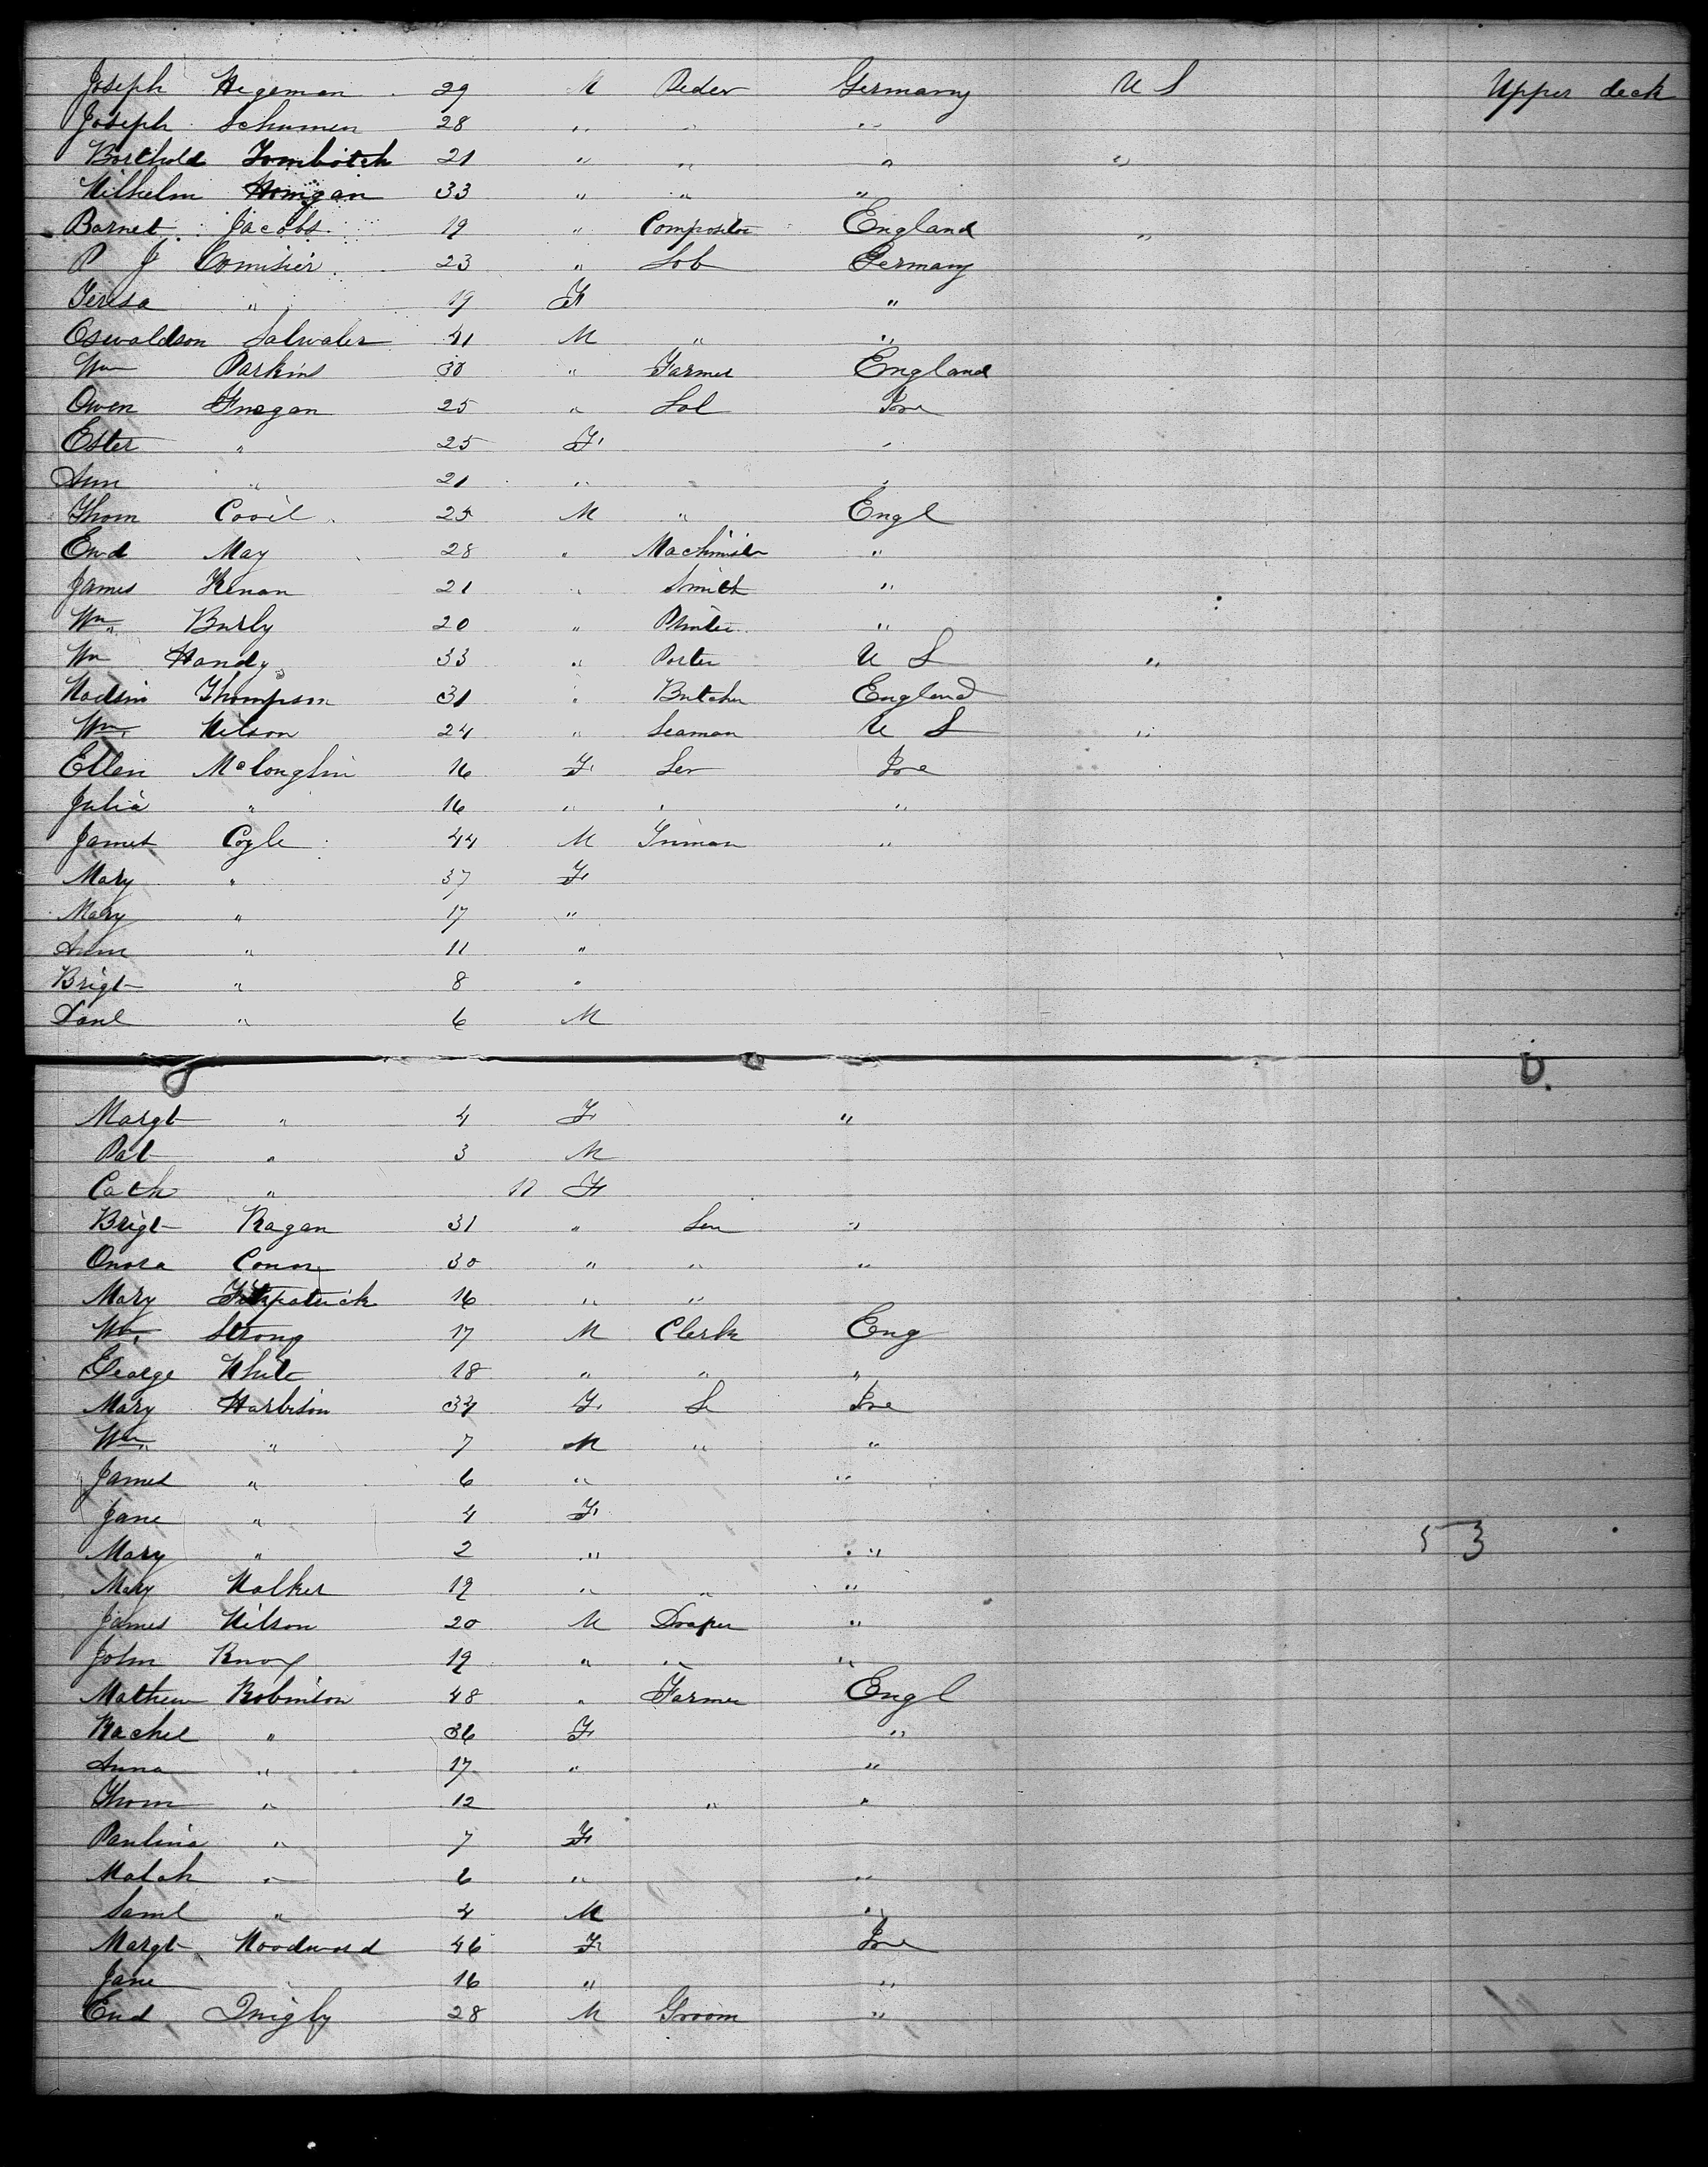 Joseph Hegeman 29 M Peder Germany U S Upper deck
Joseph Schumen 28 " " "
Berthold 21 " " " "
Wilhelm 33 " " "
Barnet Jacobs 19 " Compositor England "
P J Comisier 23 " Lob Germany
Teresa " 19 F "
Oswaldson 41 M " "
Wm Parkins 30 " Farmer England
Owen Finegan 25 " Lob Ire
Ester " 25 F "
Ann " 21 " " "
Thom Covil 25 M " Engl
Ewd May 28 " Machinist "
James Kenan 21 " Smith "
Wm Burly 20 " Printer "
Wm Handy 33 " Porter U S "
Thompson 31 " Butcher England
Wm Wilson 24 " Seaman U S "
Ellen McLoughlin 16 F Ser Ire
Julia " 16 " " "
James Coyle 44 M "
Mary " 37 F
Mary " 17 "
Anne " 11 "
Brigt " 8 "
Danl " 6 M
Margt " 4 F "
Pat " 3 M
Cath " 11 F
Brigt Ragan 31 " Ser "
Onora Conor 30 " " "
Mary Fitzpatrick 16 " "
Wm Strong 17 M Clerk Eng
George White 18 " " "
Mary Harbison 34 F S Ire
Wm " 7 M " "
James " 6 " "
Jane " 4 F
Mary " 2 " " 53
Mary Walker 19 " " "
James Wilson 20 M Draper "
John Knox 19 " " "
Mathew Robinson 48 " Farmer Engl
Rachel " 36 F "
Anna " 17 " "
Thom " 12 " "
Paulina " 7 F
Malah " 6 " "
Saml " 4 M "
Margt Woodward 46 F Ire
Jane 16 " "
Ewd Quigly 28 M Groom "